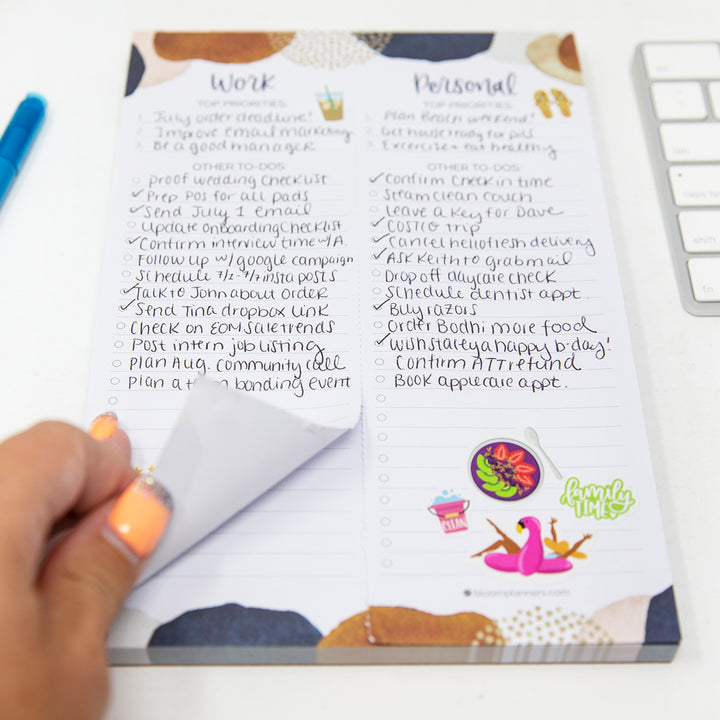 Work
TOP PRIORITIES:
1. July order deadline!
2. Improve email marketing
3. Be a good manager
OTHER TO-DOS:
proof wedding checklist
Prep POS for all pads
Send July 1 email
Update onboarding checklist
Confirm interview time w/A.
Follow up w/google campaign
Schedule 7/2-7/7 insta posts
Talk to John about order
Send Tina dropbox link
Check on EOM sale trends
Post intern job listing
Plan Aug. community call
Plan a bonding event
Personal
TOP PRIORITIES:
1. Plan Beach weekend!
2. Get house ready for pils
3. Exercise + eat healthy
OTHER TO-DOS:
Confirm check in time
Steam clean couch
Leave a key for Dave
COSTCO trip
Cancel hellofresh delivery
Ask Keith to grab mail
Drop off daycare check
Schedule dentist appt.
Buy razors
Order Bodhi more food
wish staley a happy b-day!
Confirm ATT refund
Book applecare appt.
CLEAN
family
TIME
bloomplanners.com
caps lock
shift
fn